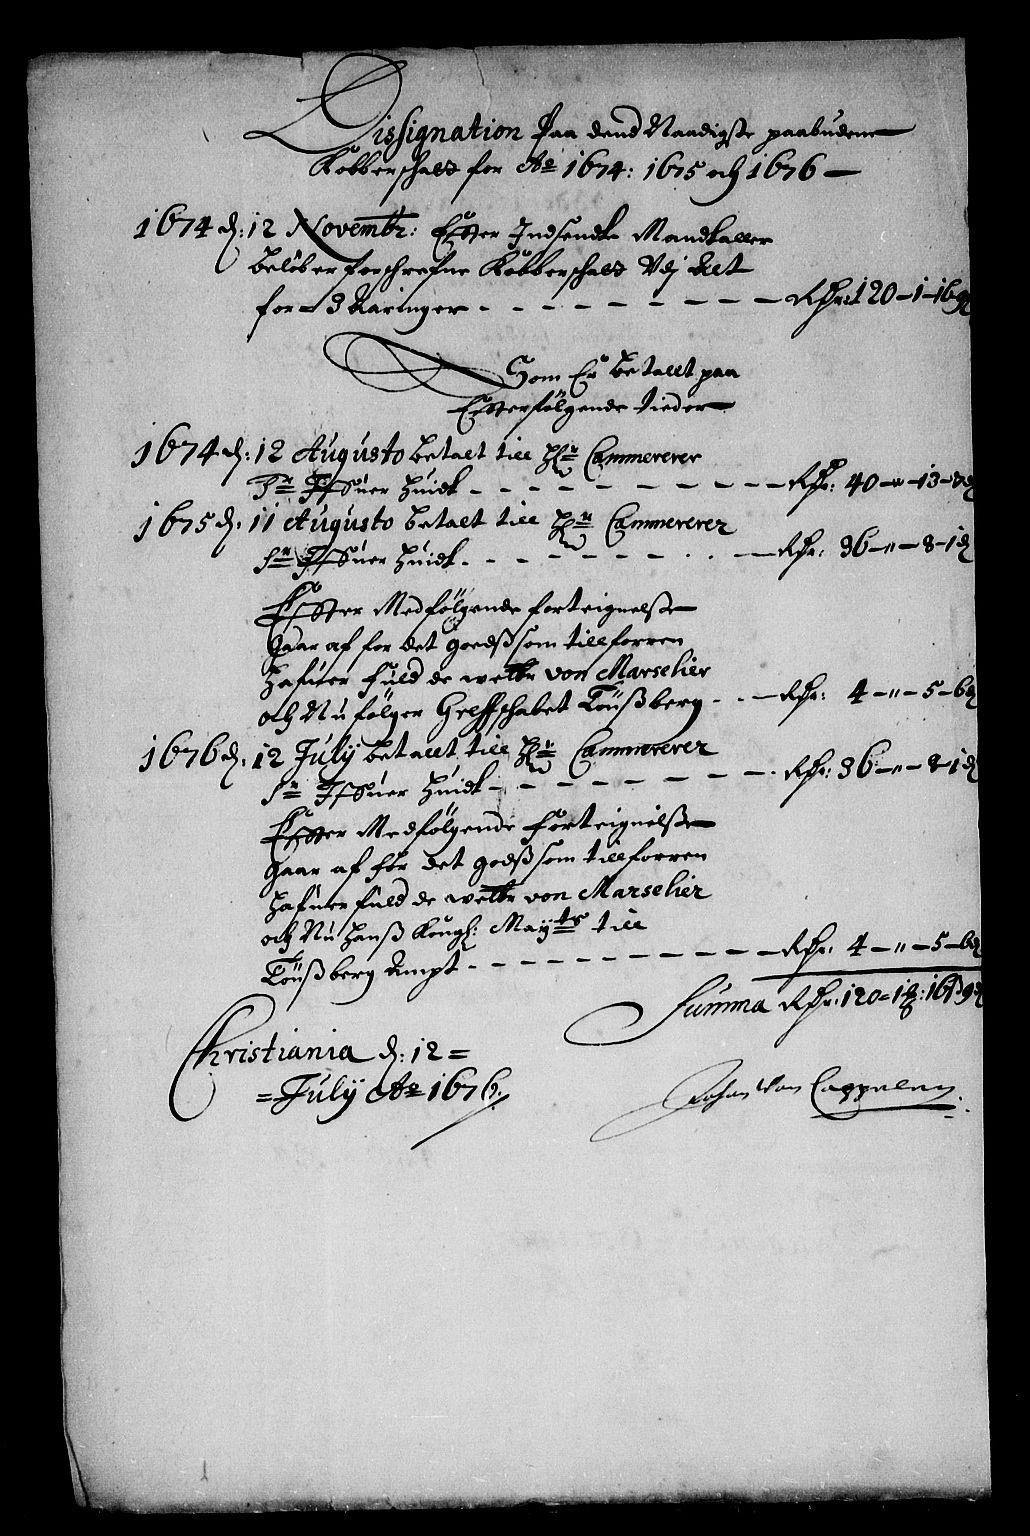 Dissignation Paa dend Naadigste paabudene
Kobberschatt for Ao 1674: 1675 och 1676
1674 d: 12 Novembr: Effter Indsendte Mandtaller
Beløber forschrefne Kobberschatt Udj Alt
for 3 Aaringer - - - Rdr: 120-1-16-9
Som Er betallt paa
Effterfølgende tieder
1674 d: 12 Augusto betalt till Hr Cammererer
Sr Iffuer Huidt - - - Rdr: 40-"-13-7d
1675 d: 11 Augusto betalt till Hr Cammererer
Sr Iffuer Huidt - - - Rdr: 36-"-8-1d
Effter Medfølgende forteignelse
Gaar af for det goedß som tillforren
Hafuer fuld de welbr von Marselier
och Nu følger Greffschabet Tønßberg - - Rdr: 4-"-5-6d
1676 d: 12 July betallt till Hr Cammererer
Sr Iffuer Huidt - - - Rdr: 36-"-8-1d
Effter Medfølgende Forteignelse
Gaar af for det godß som tillforren
Hafuer fuld de welbr von Marselier
och Nu Hanß Kongl: Mayts till
Tønßberg Ampt - - - Rdr: 4-"-5-6d
Summa Rdr: 120-1 : 16ß 9d
Christiania d: 12
July Ao 1676.
Johan Van Cappelen